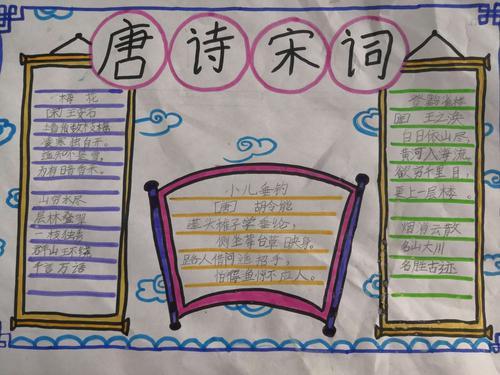 唐诗宋词
梅花
[宋]王安石
墙角数枝梅
凌寒独自开。
遥知不是雪
为有暗香来。
山穷水尽
层林叠翠
一枝独秀
群山环绕
千言万语
小儿垂钓
[唐] 胡令能
蓬头稚子学垂纶,
侧坐莓苔草映身。
路人借问遥招手,
怕得鱼惊不应人。
登鹳雀楼
[唐] 王之涣
白日依山尽,
黄河入海流。
欲穷千里目,
更上一层楼。
烟消云散
名山大川
名胜古迹